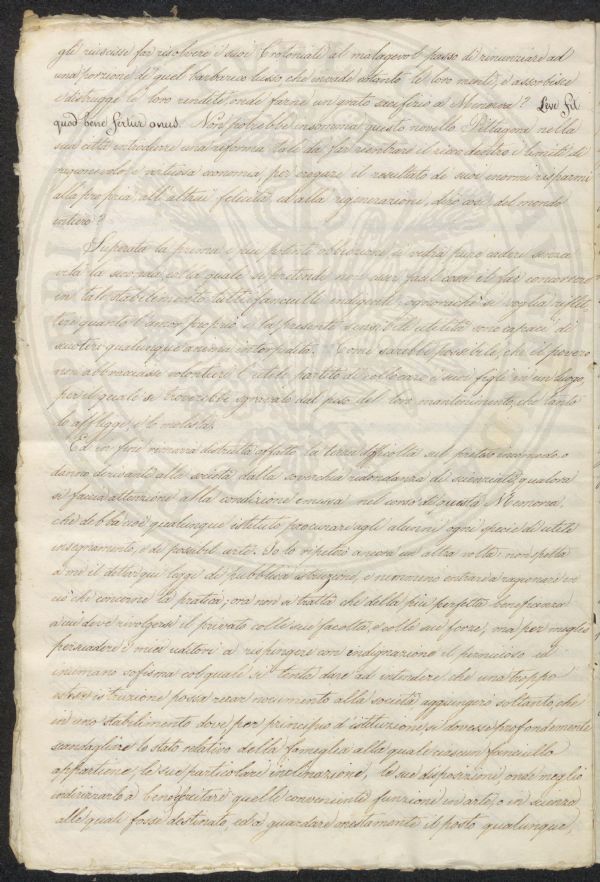 gli riuscisse far risolvere i suoi Crotoniati al malagevol passo di rinunciare ad
una porzione di quel barbarico lusso che invade cotanto le loro menti, e assorbisce
e distrugge le loro rendite, onde farne un grato sacrificio a Minerva? Leve fit
quod bene fertur onus. Non potrebbe insomma questo novello Pittagora nella
sua città introdurre una riforma tale da far rientrare il ricco dentro i limiti di
ragionevole, e virtuosa economia, per erogare il resultato de' suoi enormi risparmi
alla propria, all'altrui felicità, ed alla rigenerazione, dirò così, del mondo
intiero?
Superata la prima e più potente obbiezione, si vedrà pure cadere senza
la seconda colla quale si pretende non esser facil cosa il far concorrere
in tale stabilimento tutti i fanciulli indigenti; ognorachè si voglia riflet-
tere quanto l'amor proprio e la presente sensibile utilità sono capaci di
scuotere qualunque anima intorpidita. Come sarebbe possibile, che il povero
non abbracciasse volentieri l'utile partito di collocare i suoi figli in un luogo,
per il quale si troverebbe sgravato dal peso del loro mantenimento, che tanto
lo affligge, e lo molesta.
Ed in fine rimarrà distrutta affatto la terza difficoltà sul preteso incomodo o
danno derivante alla società dalla soverchia ridondanza di scienziati, qualora
si faccia attenzione alla condizione emessa nel corso di questa Memoria,
che debba cioè qualunque istituto procurare agli alunni ogni specie di utile
insegnamento, e di possibil arte. Io lo ripeterò ancora un' altra volta: non spetta
a me il dettar qui leggi di pubblica istruzione, e nemmeno entrare a ragionare in
ciò che concerne la pratica; ora non si tratta che della più perfetta beneficenza
a cui deve rivolgersi il privato colle sue facoltà, e colle sue forze; ma per meglio
persuadere i miei uditori a respingere con indignazione il pernicioso ed
inumano sofisma col quale si tenta dare ad intendere che una troppo
estesa istruzione possa recar nocumento alla società aggiungerò soltanto, che
in uno stabilimento dove per principio d'istituzione si dovesse profondamente
scandagliare lo stato relativo della famiglia alla quale ciascun fanciullo
appartiene, le sue particolare inclinazione, le sue disposizioni, onde meglio
indirizzarlo a bene esercitare quelle convenienti funzioni in arte, o in scienza
alle quali fosse destinato, ed a guardare onestamente il posto qualunque,